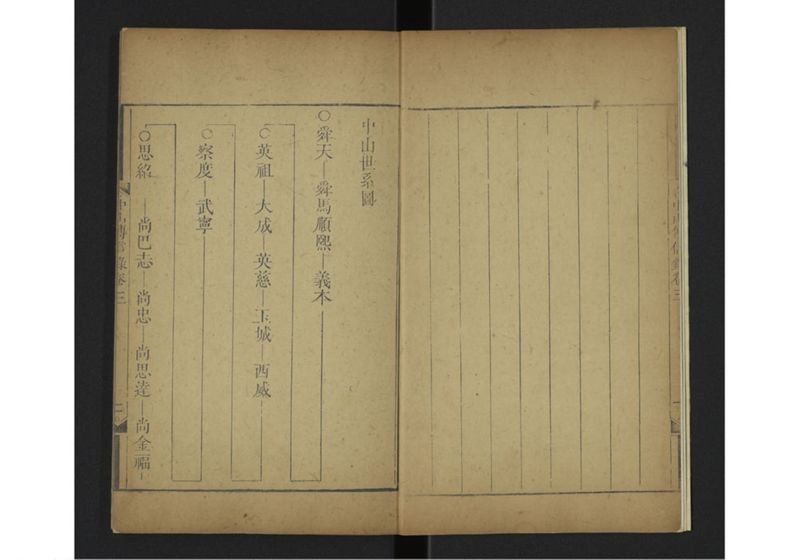 中山傳信錄卷三
中山世系圖
○舜天―舜馬順熙―義本
○英祖―大成―英慈―玉城―西威
○察度―武寧
○思紹―尚巴志―尚忠―尚思達―尚金福
中山傳信錄卷三
二